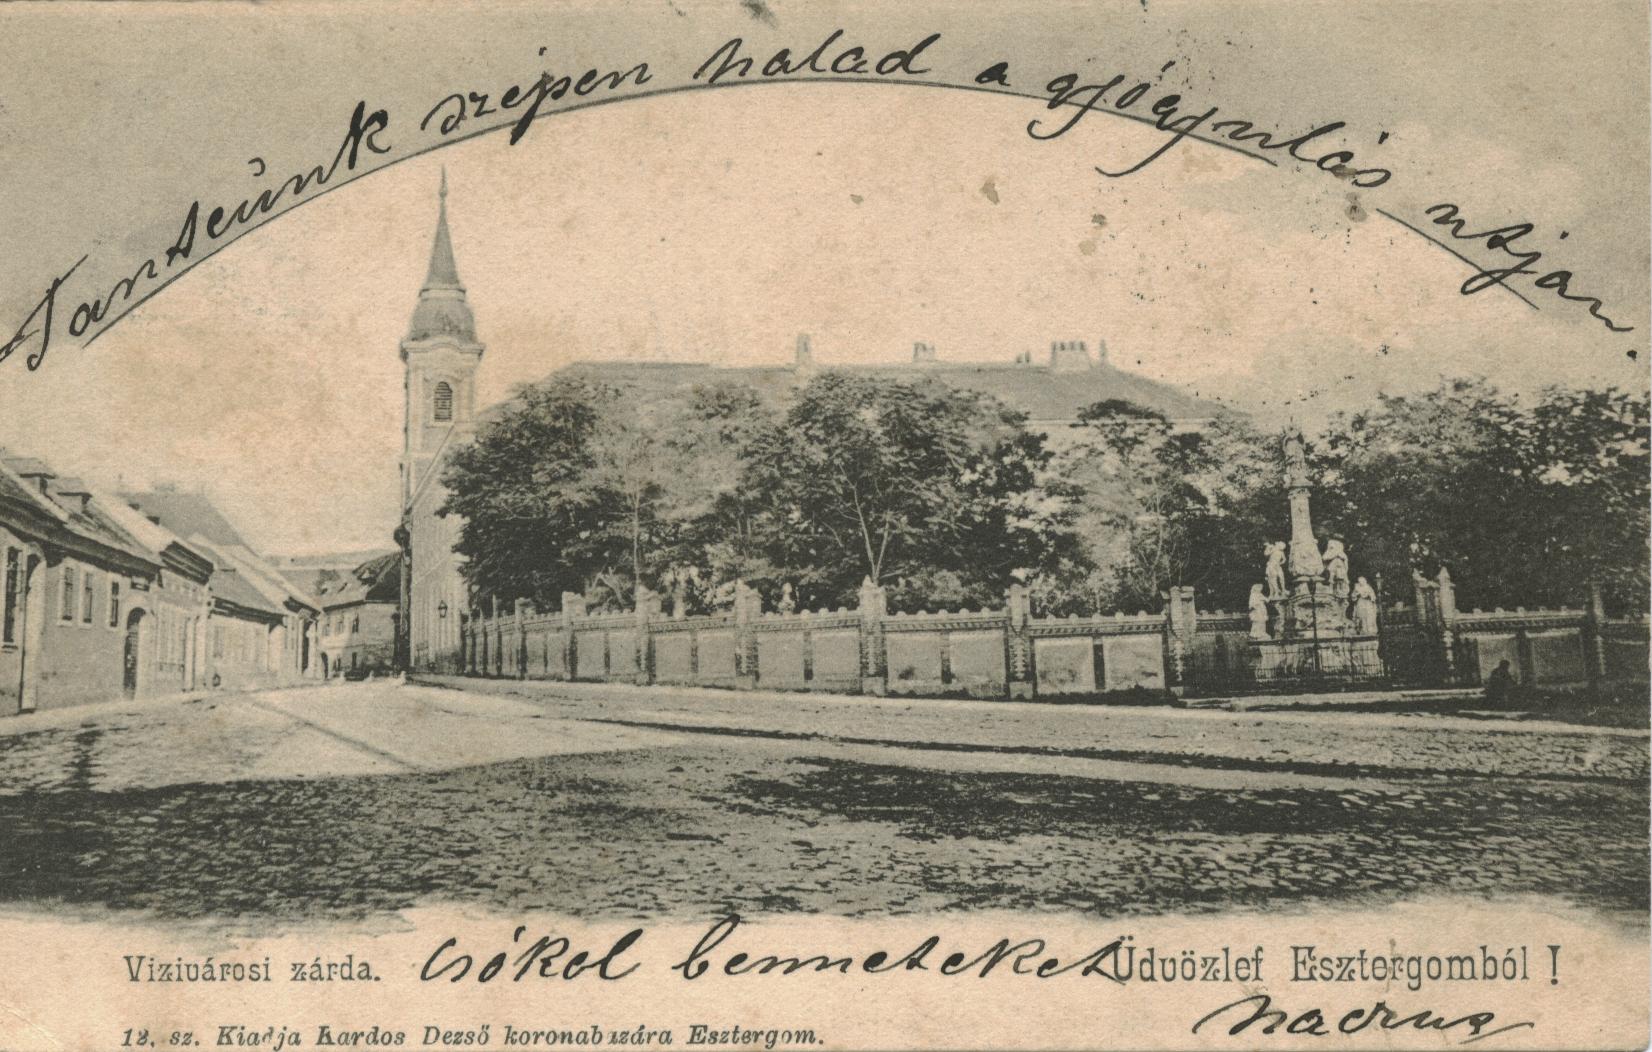 Tantsúnk szépen halad a gyógyulás utján.
Vizivárosi zárda.
Csókol benneteket
Üdvözlet Esztergomból!
12. sz. Kiadja Kardos Dezső koronabazára Esztergom.